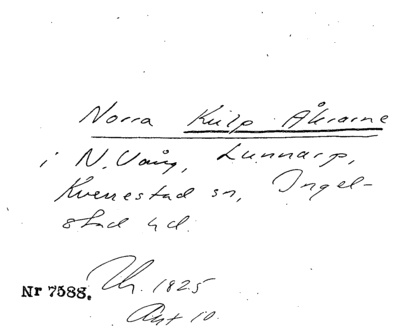 Norra Kulp Åkrarne
i N. Vång, Lunnarp,
Kverrestad sn, Ingel-
stad hd.
Nr 7588. 1825
Akt 10.